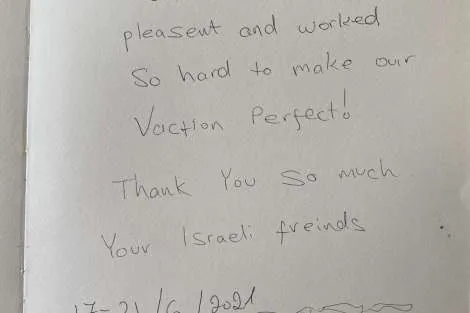 pleasent and worked
So hard to make our
Vaction Perfect!
Thank You So much
Your Israeli freinds
17-21/6/2021